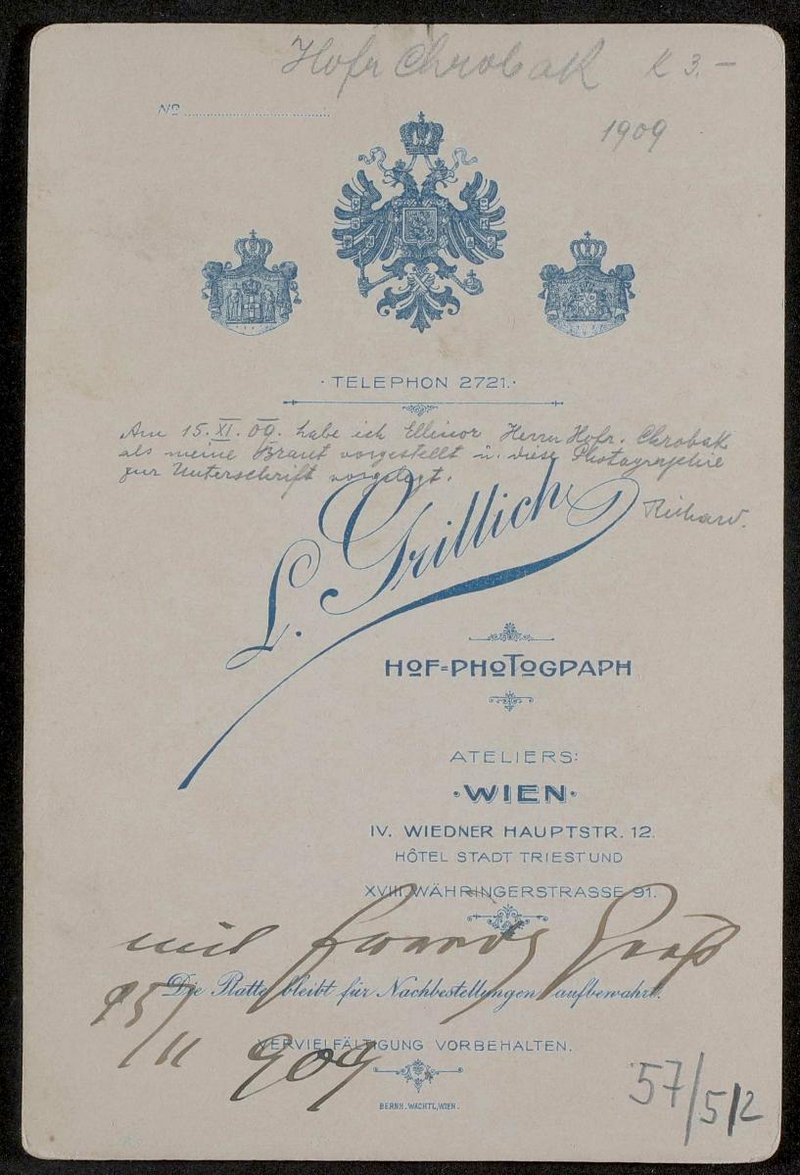 Hofr Chrobak K 3.–
Nº
1909
· TELEPHON 2721. ·
Am 15. XI. 09. habe ich Ellinor Herrn Hofr. Chrobak
als meine Braut vorgestellt u. diese Photographie
zur Unterschrift vorgelegt.
Richard.
L. Grillich
HOF=PHOTOGRAPH
ATELIERS:
·WIEN·
IV. WIEDNER HAUPTSTR. 12.
HÔTEL STADT TRIEST UND
XVIII. WÄHRINGERSTRASSE 91.
mit
Die Platte bleibt für Nachbestellungen aufbewahrt.
15/11 909
VERVIELFÄLTIGUNG VORBEHALTEN.
BERNH. WACHTL, WIEN.
57/512